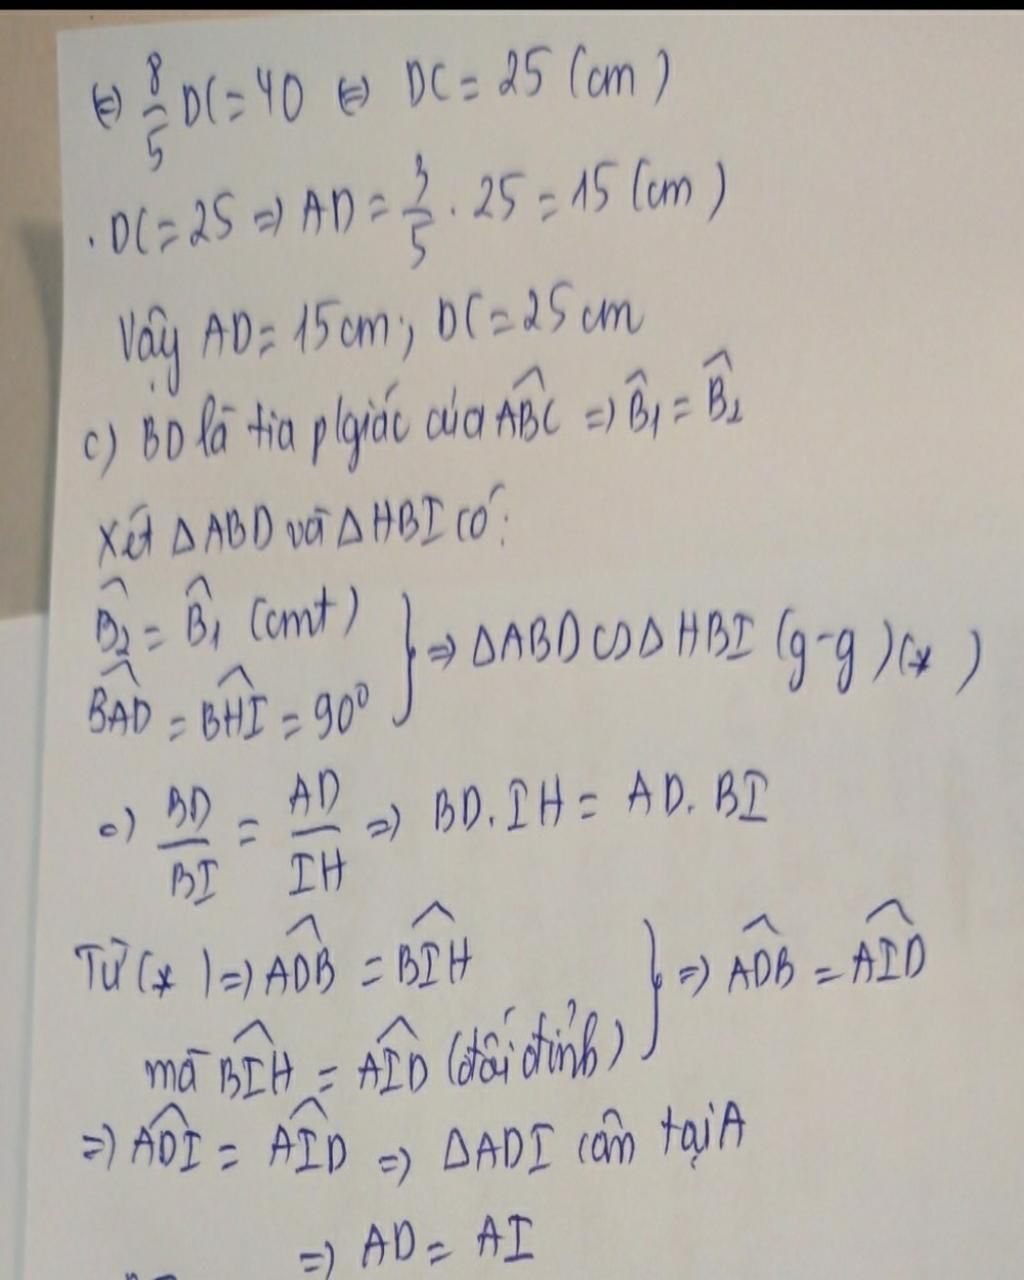 ⇔ 8/5 DC = 40 ⇔ DC = 25 (cm)
. DC = 25 ⇒ AD = 3/5 . 25 = 15 (cm)
Vậy AD = 15 cm; DC = 25 cm
c) BD là tia p/giác của ABC^ ⇒ B^₁ = B^₂
Xét ΔABD và ΔHBI có:
B^₂ = B^₁ (cmt)
BAD^ = BHI^ = 90⁰
} ⇒ ΔABD ∽ ΔHBI (g-g) (*)
⇒ BD/BI = AD/IH ⇒ BD. IH = AD. BI
Từ (*) ⇒ ADB^ = BIH^
mà BIH^ = AID^ (đối đỉnh)
} ⇒ ADB^ = AID^
⇒ ADI^ = AID^ ⇒ ΔADI cân tại A
⇒ AD = AI